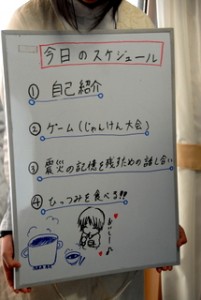 今日のスケジュール
① 自己紹介
② ゲーム(じゃんけん大会)
③ 震災の記憶を残すための話し合い
④ ひっつみを食べる!!